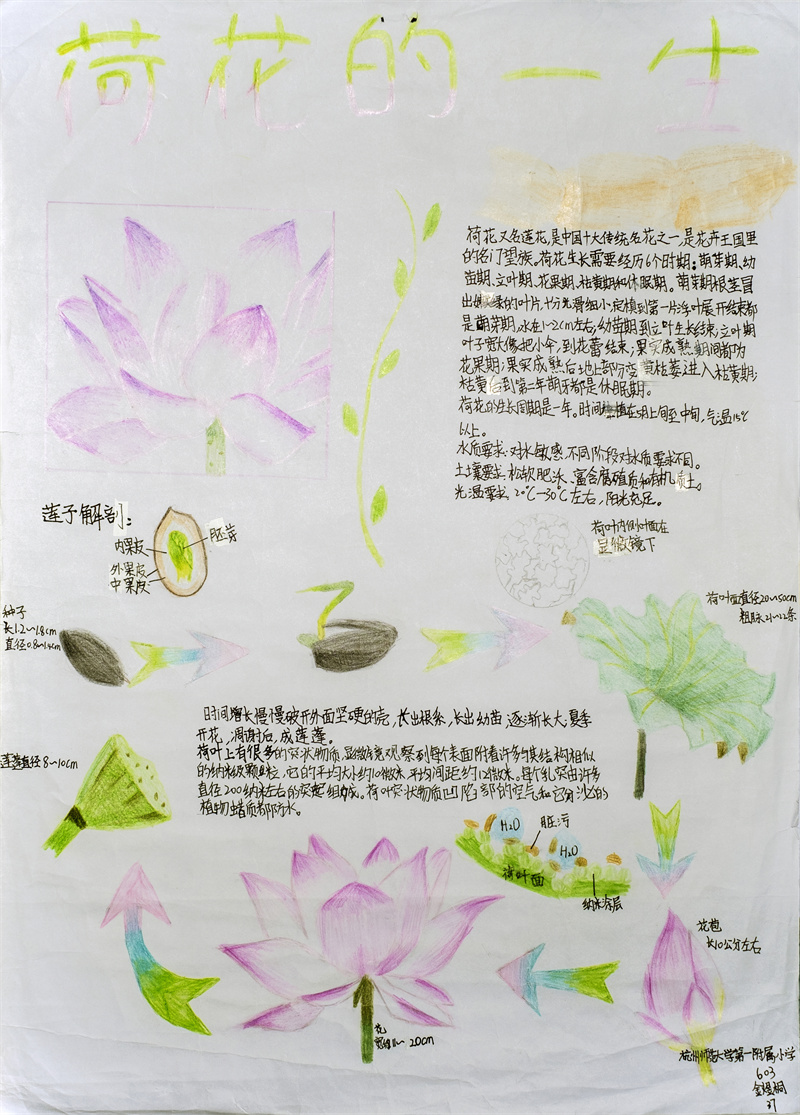 荷花的一生
荷花又名莲花,是中国十大传统名花之一,是花卉王国里
的名门望族。荷花生长需要经历6个时期:萌芽期、幼
苗期、立叶期、花果期、枯黄期和休眠期。萌芽期根茎冒
出嫩绿的叶片,十分光滑细小,定植到第一片浮叶展开结束都
是萌芽期,水在1~2cm左右;幼苗期到立叶生长结束;立叶期
叶子宽大像把小伞,到花蕾结束;果实成熟期间都为
花果期;果实成熟后地上部分变黄枯萎进入枯黄期;
枯黄后到第二年萌牙都是休眠期。
荷花的生长周期是一年。时间 月上旬至中旬,气温15℃
以上。
水质要求:对水敏感,不同阶段对水质要求不同。
土壤要求:松软肥沃、富含腐殖质和有机质土。
光温要求:20℃—30℃左右,阳光充足。
莲子解剖:
内果皮
胚芽
外果皮
中果皮
荷叶内侧叶面在
显微镜下
种子
长1.2~1.8cm
直径0.8~1.4cm
荷叶面直径20~50cm
粗脉21~22条
时间增长慢慢破开外面坚硬的壳,长出根系,长出幼苗逐渐长大,夏季
开花,凋谢后,成莲蓬。
荷叶上有很多的突状物质,显微镜观察到每表面附着许多的集结构相似
的纳米级颗粒,它的平均大小约10微米,平均间距约12微米。每个乳突由许多
直径200纳米左右的突起组成。荷叶突状物质凹陷部的空气和它分泌的
植物蜡质都防水。
莲蓬直径8~10cm
H2O
脏污
H2O
荷叶面
纳米涂层
花苞
长10公分左右
花
20cm
杭州师范大学第一附属小学
603
37